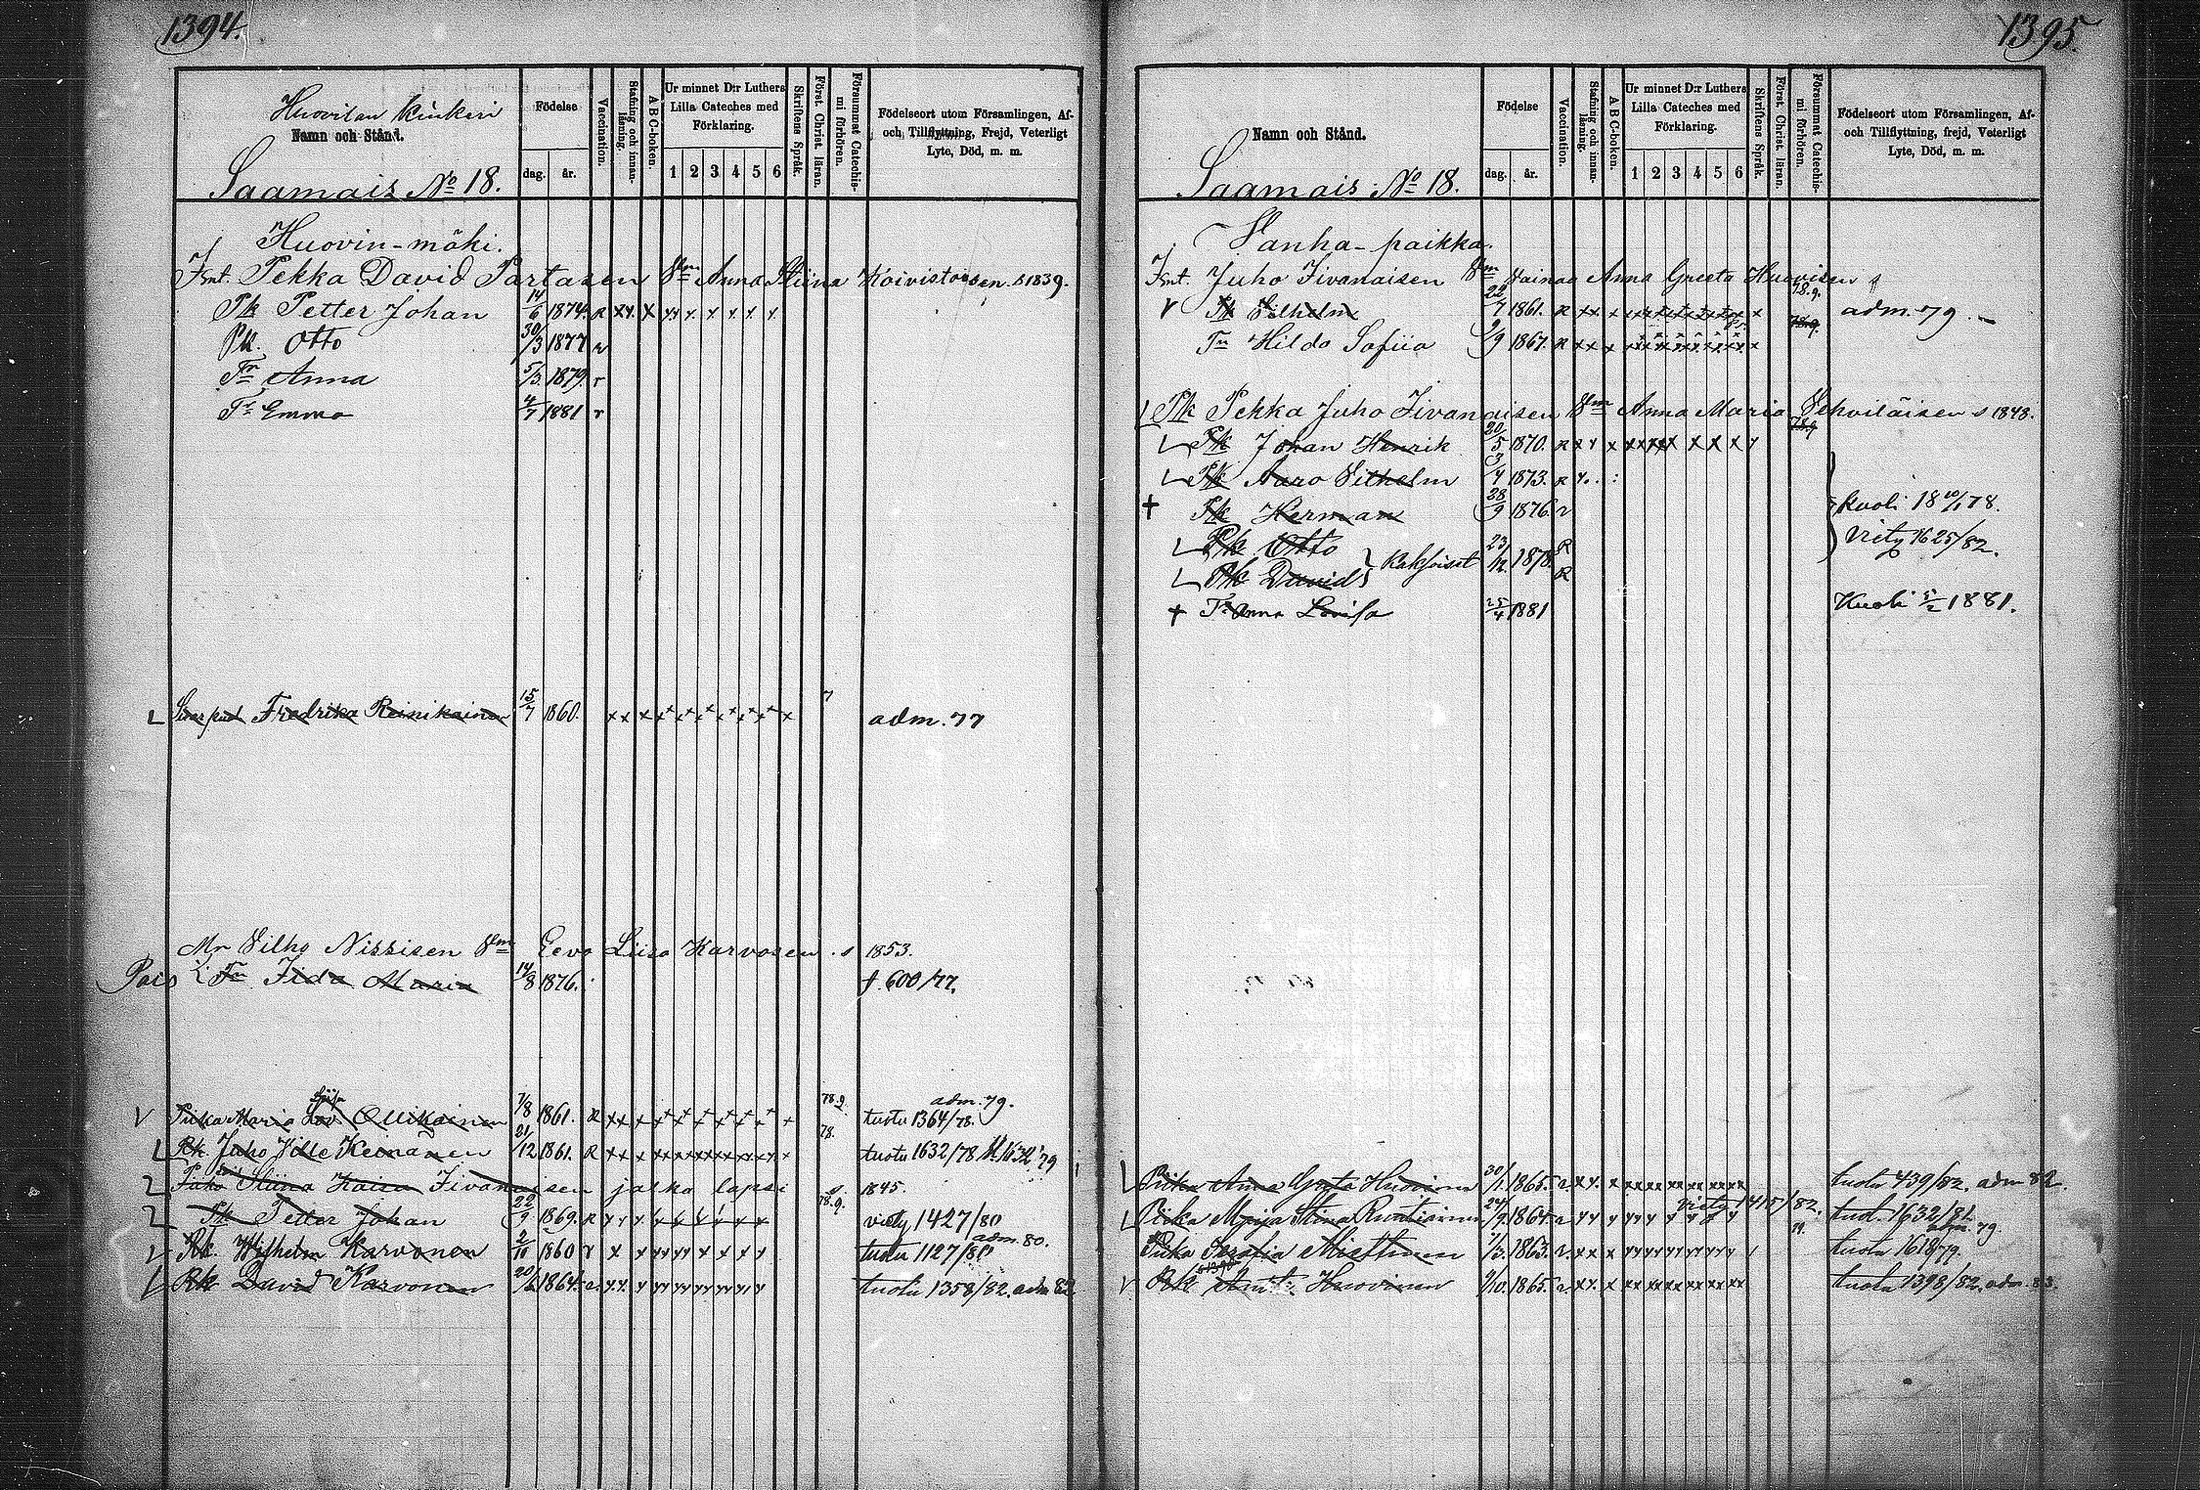 1394.
Huovilan kinkeri
Namn och Stånd.
Saamais No 18.
Födelse
dag. år.
Vaccination.
Stafning och innanläsning.
A B C-boken.
Ur minnet D:r Luthers Lilla Cateches med Förklaring.
1 2 3 4 5 6
Skriftens Språk.
Föret. Christ. läran.
Försummat Catechismi förhören.
Födelseort utom Församlingen, Af- och Tillflyttning, Frejd, Veterligt Lyte, Död, m. m.
Huovin-mäki.
Pekka David Partasen Anna Stiina Koivistoosen s 1839.
Pk Petter Johan 14/6 1874. R
Pk. Otto 30/3 1877 r
Tr Anna 5/3 1879. r
Tr Emma 4/7 1881 r
Fredrika Reinikainen 15/7 1860. adm. 77
Mr Vilho Nissisen Vm Eeva Liisa Karvosen s 1853.
Pois Tr Iida Maria 14/8 1876. f. 600/77.
adm. 79.
Piika Maria Lov Ollikainen 7/8 1861. R 78.9. tuotu 1364/78.
Rk. Juho Ville Keinänen 21/12 1861. R 78. tuotu 1632/78
Stiina Kaisa Iivanaisen jalka lapsi 1845.
Pk Petter Johan 22/9 1869. R 78.9. viety 1427/80
Rk. Wilhelm Karvonen 2/10 1860 r tuotu 1127/80 adm. 80.
Rk David Karvonen 1864. tuotu 1358/82. adm 82
1395.
Namn och Stånd.
Saamais No 18.
Födelse
dag. år.
Vaccination.
Stafning och innanläsning.
A B C-boken.
Ur minnet D:r Luthers Lilla Cateches med Förklaring.
1 2 3 4 5 6
Skriftens Språk.
Föret. Christ. läran.
Försummat Catechismi förhören.
Födelseort utom Församlingen, Af- och Tillflyttning, frejd, Veterligt Lyte, Död, m. m.
Vanha-paikka.
Juho Iivanaisen Vm vainaa Anna Greeta Huovisen
Pk Vilhelm 22/7 1861. R 78.9. adm. 79.
Tr Hilda Sofiia 9/9 1867. R 78.9.
Pk Pekka Juho Iivanaisen Vm Anna Maria Vehviläisen s 1848.
Pk Johan Henrik 20/5 1870. R 78.9
Pk Aaro Vilhelm 3/4 1873. R
Pk Herman 28/9 1876. r kuoli 18 10/1 78.
Pk Otto 23/12. 1878. R viety 1625/82.
Pk David kaksoiset R
Tr Anna Lovisa 25/4 1881 Kuoli 5/2 1881.
Piika Anna Greta Huovinen 30/1. 1865. tuotu 439/82. adm 82.
viety 1415/82.
Piika Maija Stina 1864. tuot. 1632/81
adm. 79.
Piika Serafia Miettinen 1/3. 1863. 79. tuotu 1618/79.
Rk Ant. Huovinen 9/10. 1865. tuotu 1398/82. adm. 83.